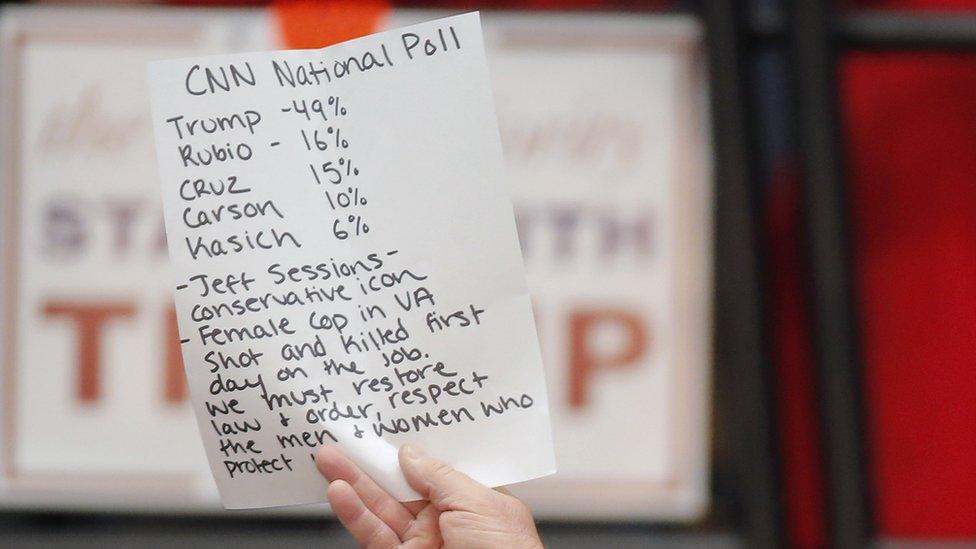 CNN National Poll
Trump - 49%
Rubio - 16%
CRUZ 15%
Carson 10%
Kasich 6%
- Jeff Sessions -
conservative icon
- Female cop in VA
shot and killed first
day on the job.
we must restore
law & order, respect
the men & women who
protect
STA ITH
T P